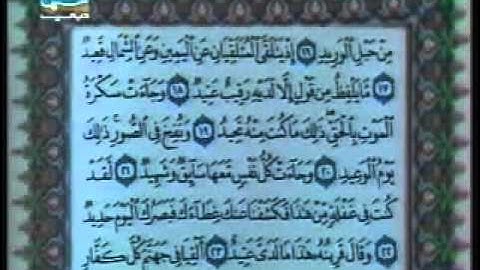 مِنْ حَبْلِ ٱلْوَرِيدِ ١٦ إِذْ يَتَلَقَّى ٱلْمُتَلَقِّيَانِ عَنِ ٱلْيَمِينِ وَعَنِ ٱلشِّمَالِ قَعِيدٌ
١٧ مَّا يَلْفِظُ مِن قَوْلٍ إِلَّا لَدَيْهِ رَقِيبٌ عَتِيدٌ ١٨ وَجَآءَتْ سَكْرَةُ
ٱلْمَوْتِ بِٱلْحَقِّ ذَٰلِكَ مَا كُنتَ مِنْهُ تَحِيدُ ١٩ وَنُفِخَ فِى ٱلصُّورِ ذَٰلِكَ
يَوْمُ ٱلْوَعِيدِ ٢٠ وَجَآءَتْ كُلُّ نَفْسٍ مَّعَهَا سَآئِقٌ وَشَهِيدٌ ٢١ لَّقَدْ
كُنتَ فِى غَفْلَةٍ مِّنْ هَٰذَا فَكَشَفْنَا عَنكَ غِطَآءَكَ فَبَصَرُكَ ٱلْيَوْمَ حَدِيدٌ
٢٢ وَقَالَ قَرِينُهُۥ هَٰذَا مَا لَدَىَّ عَتِيدٌ ٢٣ أَلْقِيَا فِى جَهَنَّمَ كُلَّ كَفَّارٍ